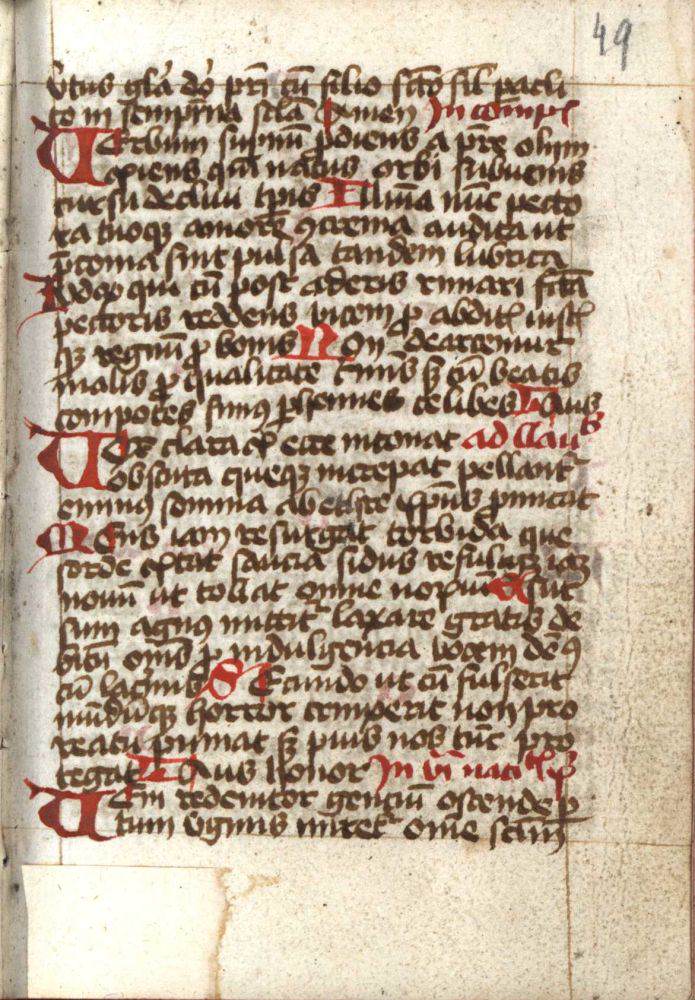 49
vtus gla do pri cu filio scto sil pacli
to in sempitna scla Amen In complet
Verbum supnu pdiens a pre olim
exiens qui natus orbi subuenis
cursu decliui tpis Illuia nuc pecto
ra tuoqz amore 9crema audita ut
pconia sint pulsa tandem lubrica
qui cu post aderis rimari fcta
pectoris reddens vicem p abdit iust
qz regnu p bonis Non dearcemur
malis p qualitate s cu beatis
compotes sim9 phennes celibes Laus
Vox clara ecce intonat ad llau
obscura queqz increpat pellant
emin9 somnia ab ethre xpus pmicat
Mens iam resurgat torbida que
sorde extat saucia sidus refulget ia
nouu ut tollat omne noxiu Esur
sum agn9 mittit laxare gratis de
bitu oms p indulgencia vocem dem9
cu lacmis Secundo ut cu fulserit
mudu horror cinxerit non pro
reatu puniat s pius nos tuc pro
tegat Laus honor In vi nat
Veni redemtor genciu ostende p
tum vginis miret ome sclm